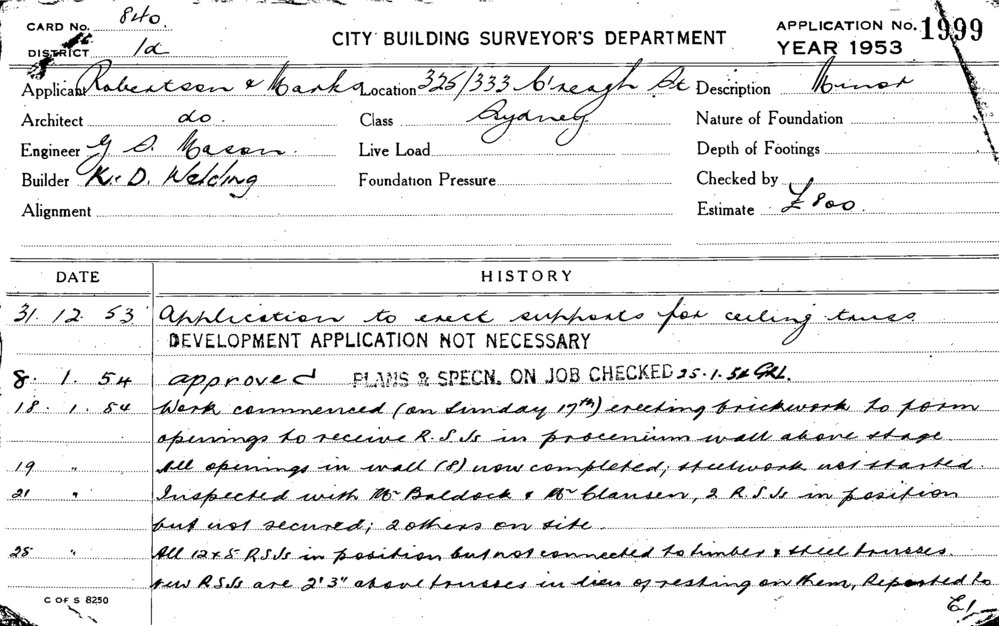 CARD No. 840.
DISTRICT 1d
CITY BUILDING SURVEYOR'S DEPARTMENT
APPLICATION No. 1999
YEAR 1953
Applicant Robertson & Marks Location 325/333 C'reagh St Description Minor
Architect do. Class Sydney Nature of Foundation
Engineer G S. Mason. Live Load Depth of Footings
Builder K. D. Welding Foundation Pressure Checked by
Alignment Estimate £800.
DATE HISTORY
31. 12. 53 Application to erect supports for ceiling truss.
DEVELOPMENT APPLICATION NOT NECESSARY
8. 1. 54 approved PLANS & SPECN. ON JOB CHECKED 25.1.54
18. 1. 54 Work commenced (on Sunday 17th) erecting brickwork to form
openings to receive R.S.Js in procenium wall above stage
19 " All openings in wall (8) now completed; steelwork not started
21 " Inspected with Mr Baldock & Mr Clausen, 2 R.S.Js in position
but not secured; 2 others on site.
25 " All 12x5 R.S.Js in position but not connected to timber & steel trusses.
new R.S.Js are 2'3" above trusses in lieu of resting on them, Reported to
C OF S 8250